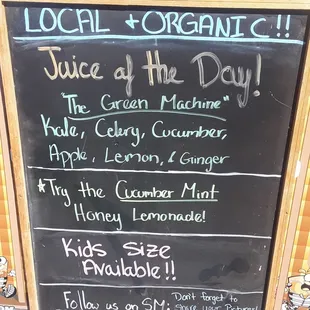 LOCAL + ORGANIC!!
Juice of the Day!
"The Green Machine"
Kale, Celery, Cucumber,
Apple, Lemon, & Ginger
*Try the Cucumber Mint
Honey Lemonade!
Kids Size
Available!!
Follow us on SM:
Don't forget to
share your Pictures!